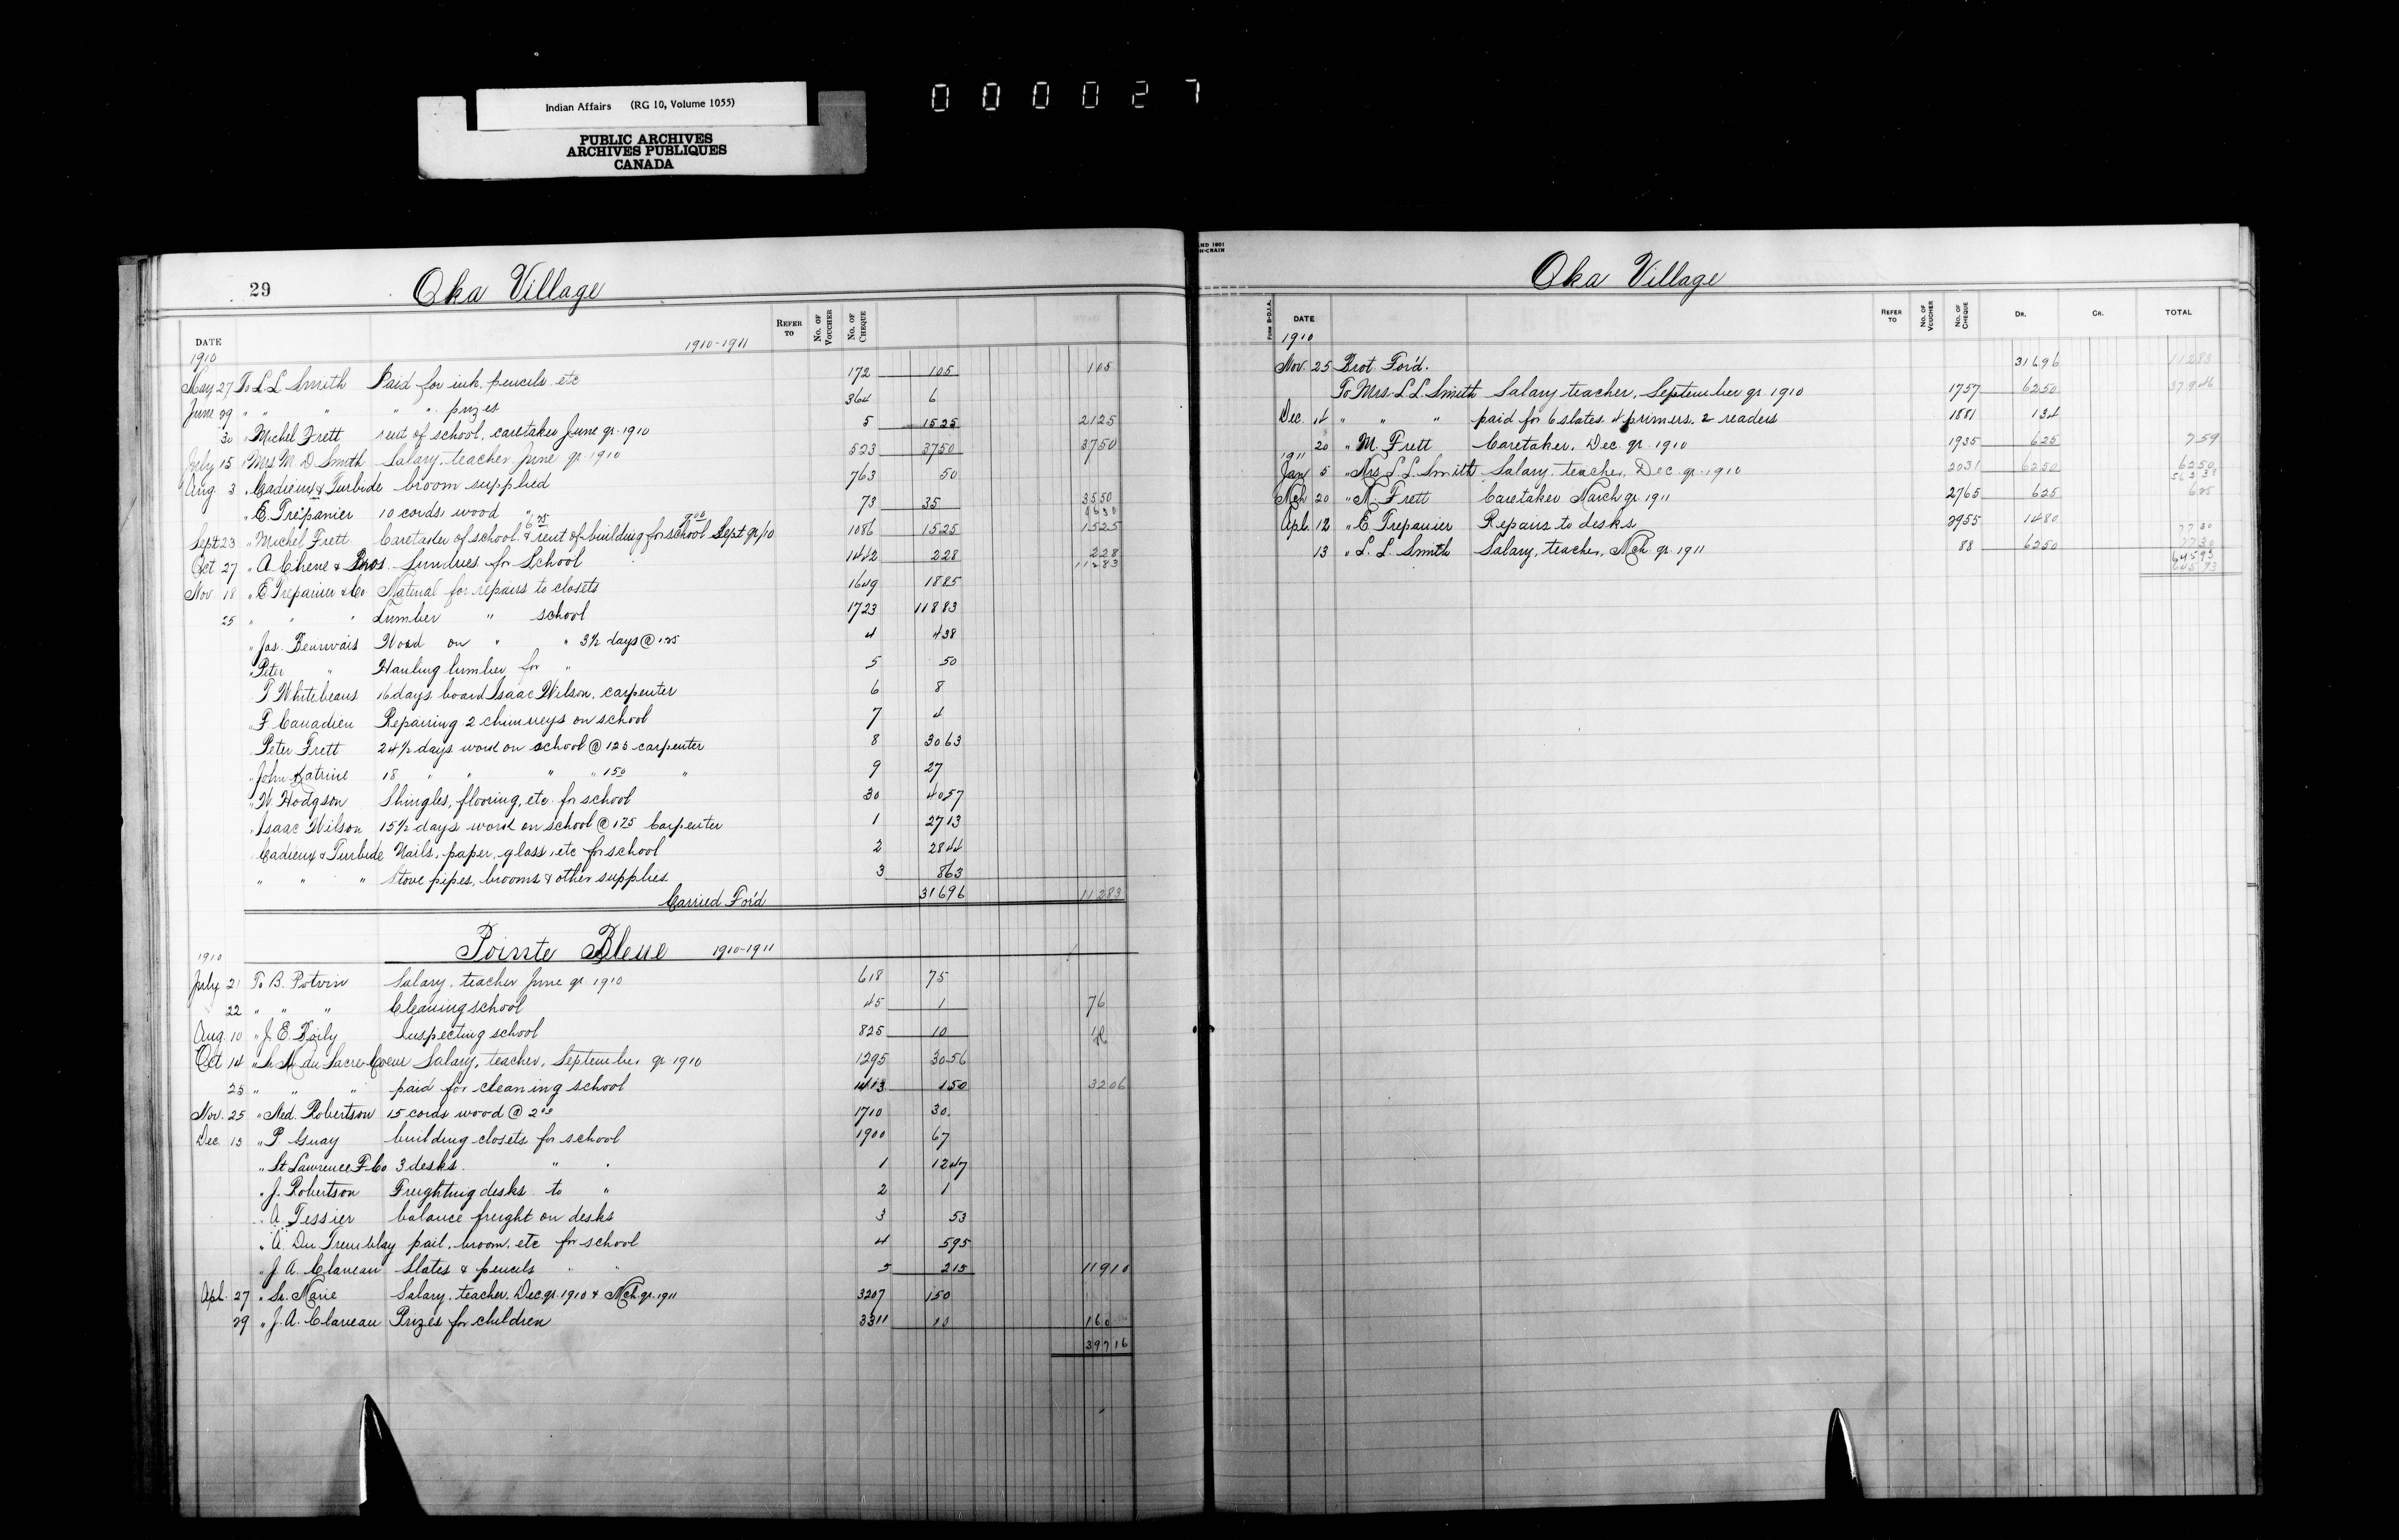 Indian Affairs (RG 10, Volume 1055)
PUBLIC ARCHIVES
ARCHIVES PUBLIQUES
CANADA
000027
29 Oka Village
DATE 1910-1911 REFER TO No. OF VOUCHER No. OF CHEQUE
1910
May 27 To L L Smith Paid for ink, pencils etc 172 105 105
June 29 " " " " " prizes 364 6
30 " Michel Frett rent of school, caretaker June qr 1910 5 1525 2125
July 15 " Mrs M. D Smith Salary, teacher June qr 1910 523 3750 3750
Aug. 3 " Cadieux & Turbide broom supplied 763 50
" E. Trepanier 10 cords wood 73 35 3550
Sept 23 " Michel Frett Caretaker of school 6 25 & rent of building for school 9 00 Sept qr/10 1086 1525 1525
Oct 27 " A. Chene & Bros. Sundries for School 1442 228 228
11283
Nov. 18 " E Trepanier & Co Material for repairs to closets 1649 1885
25 " " " Lumber " school 1723 11883
" Jas. Beauvais Work on " " 3½ days @ 1.25 4 438
" Peter " Hauling lumber for " 5 50
T Whitebeans 16 days board Isaac Wilson, carpenter 6 8
" F Canadien Repairing 2 chimneys on school 7 4
Peter Frett 24½ days work on school @ 125 carpenter 8 3063
" John Katrine 18 " " " " 150 " 9 27
" W. Hodgson Shingles, flooring, etc for school 30 4057
" Isaac Wilson 15½ days work on school @ 175 Carpenter 1 2713
Cadieux & Turbide Nails, paper, glass, etc for school 2 2844
" " " Stove pipes, brooms & other supplies 3 863
Carried Fo'd 31696 11283
Pointe Bleue 1910-1911
1910
July 21 To B. Potvin Salary, teacher June qr 1910 618 75
22 " " " Cleaning school 45 1 76
Aug. 10 " J. E. Boily Inspecting school 825 10
Oct 14 " Sr. M. du Sacre-Coeur Salary, teacher, September qr 1910 1295 3056
25 " " " paid for cleaning school 1413 150 3206
Nov. 25 " Ned. Robertson 15 cords wood @ 2 00 1710 30.
Dec. 15 " P Guay building closets for school 1900 67
" St Lawrence F. Co 3 desks " " 1 1247
" J. Robertson Freighting desks to " 2 1
" A. Tessier balance freight on desks 3 53
" A. Du Tremblay pail, broom, etc for school 4 595
" J. A. Claveau Slates & pencils " " 5 215 11910
Apl. 27 " Sr. Marie Salary, teacher, Dec qr. 1910 & Mch qr. 1911 3207 150
29 " J. A. Claveau Prizes for children 3311 10 160
39716
Oka Village
Form B-D.I.A. DATE REFER TO No. OF VOUCHER No. OF CHEQUE DR. CR. TOTAL
1910
Nov. 25 Brot Fo'd. 31696 11283
To Mrs. L L Smith Salary, teacher, September qr 1910 1757 6250 37946
Dec. 14 " " " paid for 6 slates, 4 primers, 2 readers 1881 134
20 " M. Frett Caretaker, Dec. qr. 1910 1935 625 759
1911
Jan 5 " Mrs L. L. Smith Salary, teacher, Dec. qr. 1910 2031 6250 6250
Mch 20 " M. Frett Caretaker March qr 1911 2765 625 625
Apl. 12 " E Trepanier Repairs to desks 2955 1480
13 " L. L. Smith Salary, teacher, Mch qr 1911 88 6250 7730
64593
64593